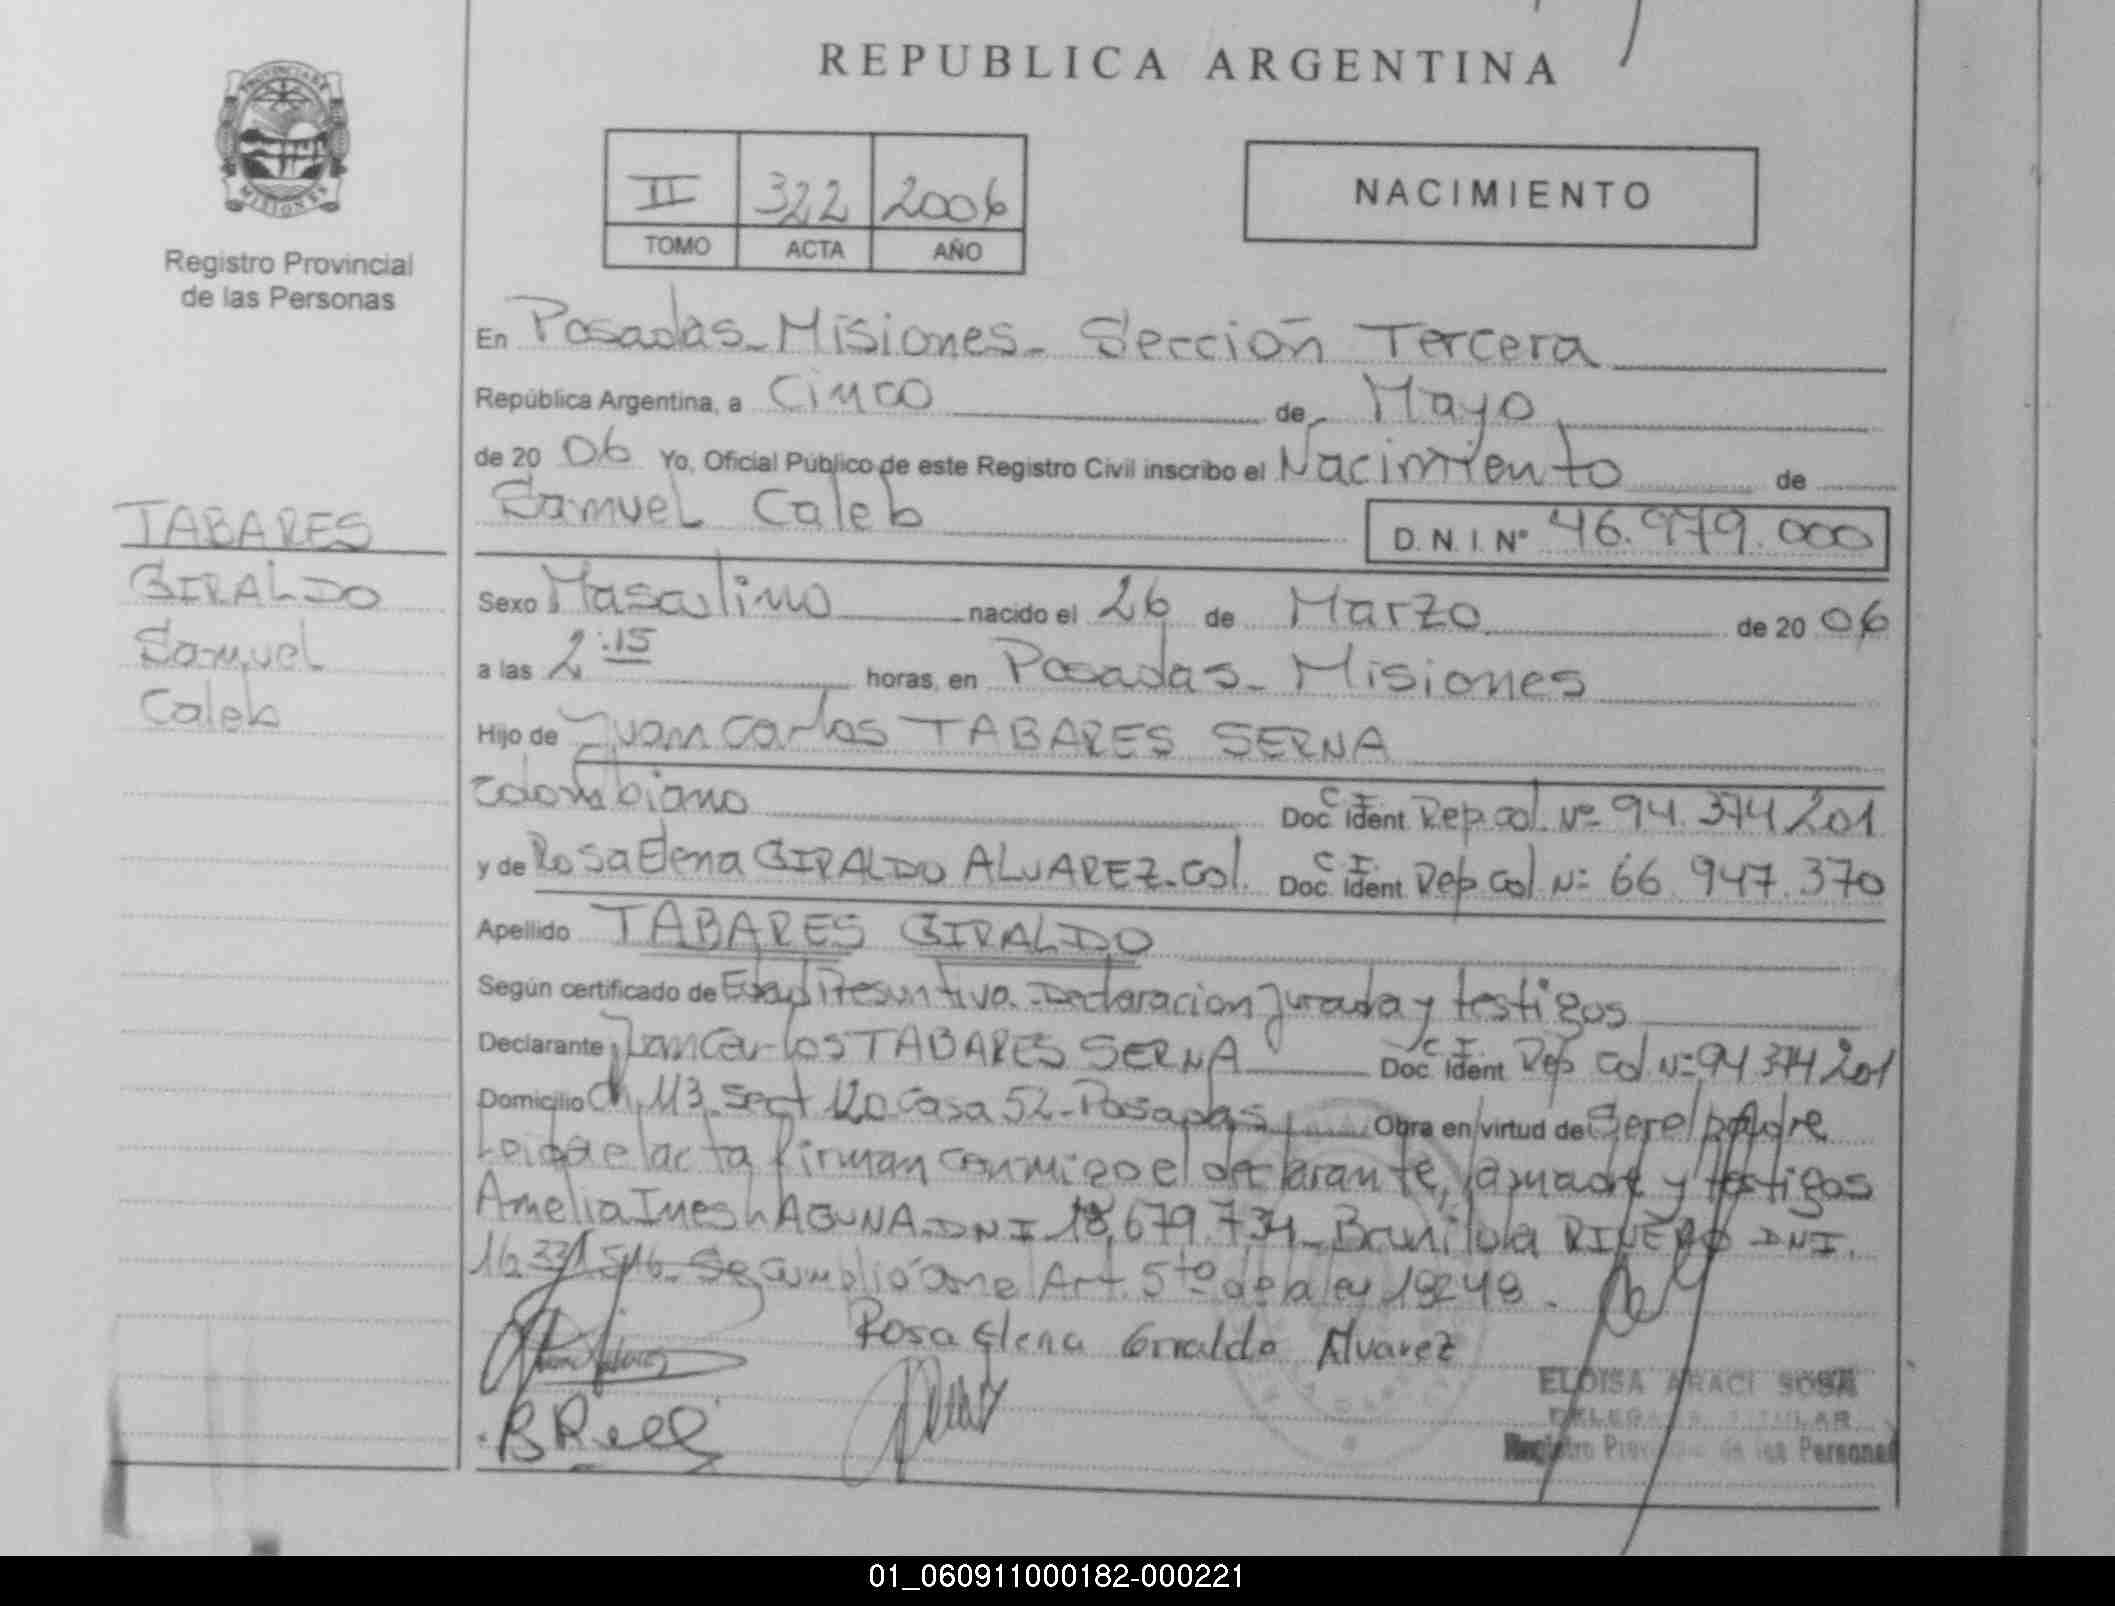 REPUBLICA ARGENTINA
PROVINCIA DE
MISIONES
Registro Provincial
de las Personas
II 322 2006
TOMO ACTA AÑO
NACIMIENTO
En Posadas - Misiones - Sección Tercera
República Argentina, a Cinco de Mayo
de 20 06 Yo, Oficial Público de este Registro Civil inscribo el Nacimiento de
Samuel Caleb
D. N. I. N° 46.979.000
TABARES
GIRALDO
Samuel
Caleb
Sexo Masculino nacido el 26 de Marzo de 20 06
a las 2:15 horas, en Posadas - Misiones
Hijo de Juan Carlos TABARES SERNA
Colombiano Doc. Ident. C.I. Rep. Col. Nº 94.374.201
y de Rosa Elena GIRALDO ALVAREZ - Col. Doc. Ident. C.I. Rep. Col. Nº 66.947.370
Apellido TABARES GIRALDO
Según certificado de Edad Presuntiva. Declaracion Jurada y testigos
Declarante Juan Carlos TABARES SERNA Doc. Ident. C.I. Rep. Col. Nº 94 374 201
Domicilio Ch. 113 Sect 120 Casa 52 - Posadas Obra en virtud de Ser el padre
Leida el acta firman conmigo el declarante, la madre y testigos
Amelia Ines LAGUNA - DNI 18.679.734 - Brunilda RIVERO DNI.
16.331.516 - Se cumplió con el Art. 5to de la ley 18248.
Rosa Elena Giraldo Alvarez
ELOISA ARACI SOSA
DELEGADA TITULAR
Registro Provincial de las Personas
01_060911000182-000221